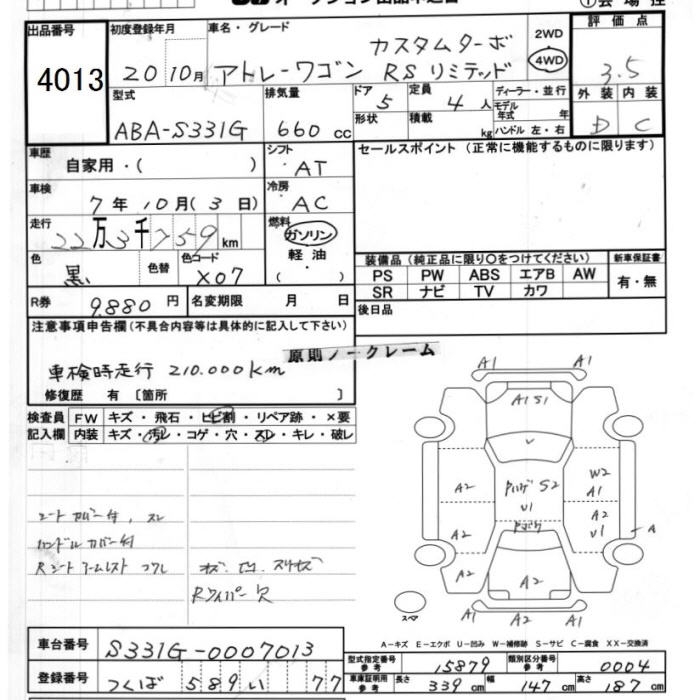 出品番号
4013
初度登録年月
20 10月
車名・グレード
カスタムターボ
アトレーワゴン RS リミテッド
2WD
4WD
評価点
3.5
外装 内装
D C
型式
ABA-S331G
排気量
660 cc
ドア 5
形状
定員 4 人
積載 kg
ディーラー・並行
モデル年式 年
ハンドル 左・右
車歴
自家用・( )
シフト
AT
セールスポイント (正常に機能するものに限ります)
車検
7年 10月(3日)
冷房
AC
走行
22万3千759km
燃料
ガソリン
軽油
( )
色
黒
色替
色コード
X07
装備品(純正品に限り○をつけてください)
新車保証書
PS PW ABS エアB AW
SR ナビ TV カワ
有・無
R券 9.880円
名変期限 月 日
後日品
注意事項申告欄(不具合内容等は具体的に記入して下さい)
原則ノークレーム
車検時走行 210.000km
修復歴 有〔箇所 〕
検査員
記入欄
FW キズ・飛石・ヒビ割・リペア跡・×要
内装 キズ・汚レ・コゲ・穴・スレ・キレ・破レ
シートカバー付、スレ
ハンドルカバー付
Rシートアームレスト
Rワイパー欠
A1 A1
A1 S1
U
A2 S2 W2
U1 A1
A2 A2
U1 A
A2 A2 A2
A1 A2 A1
スペア
A－キズ E－エクボ U－凹み W－補修跡 S－サビ C－腐食 XX－交換済
車台番号 S331G-0007013
登録番号 つくば 589 い 77
型式指定番号
参考
15879
類別区分番号
参考
0004
車庫証明用
参考
長さ 339 cm 幅 147 cm 高さ 187 cm